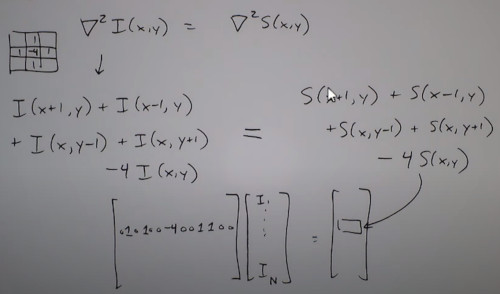 ∇² I(x,y) = ∇² S(x,y)
1
1 -4 1
1
↓
I(x+1, y) + I(x-1, y)
+ I(x, y-1) + I(x, y+1)
-4 I(x,y)
=
S(x+1, y) + S(x-1, y)
+ S(x, y-1) + S(x, y+1)
- 4 S(x,y)
I₁
I_N
=